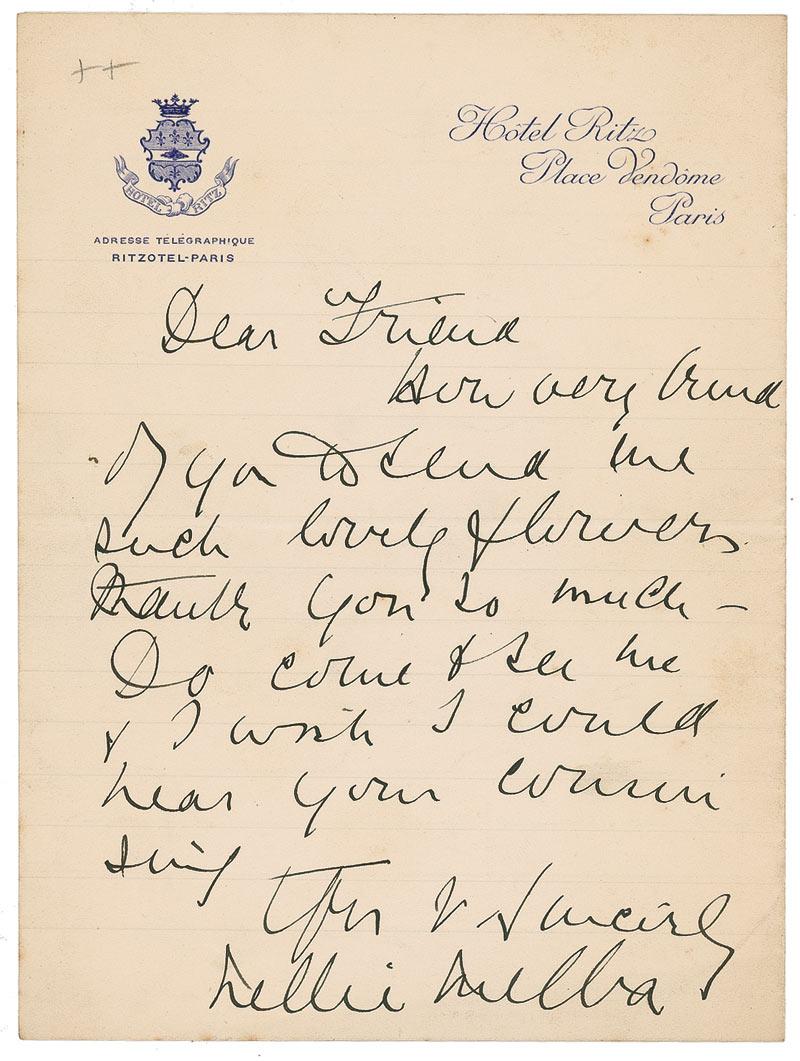 ++
HOTEL RITZ
ADRESSE TÉLÉGRAPHIQUE
RITZOTEL-PARIS
Hôtel Ritz
Place Vendôme
Paris
Dear Friend
How very kind
of you to send me
such lovely flowers
thank you so much -
Do come & see me
& I wish I could
hear your cousin
sing
Yrs v Sincerely
Nellie Melba